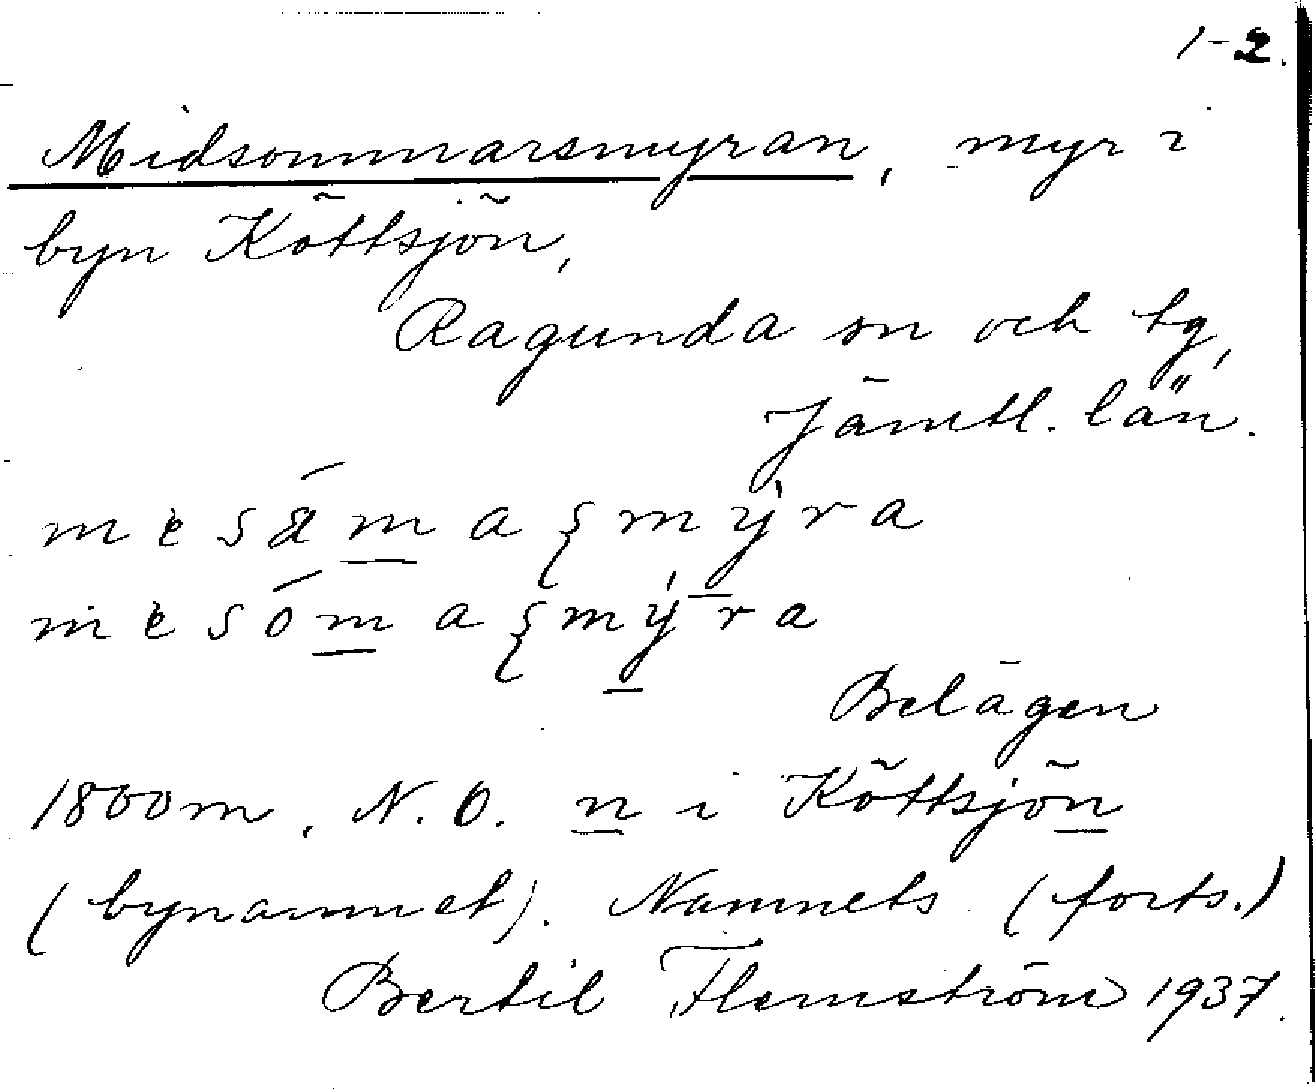 1-2.
Midsommarsmyran, myr i
byn Köttsjön,
Ragunda sn och tg,
Jämtl. län.
mesámaʂmýra
mesómaʂmýra
Belägen
1800m. N.O. n i Köttsjön
(bynamnet). Namnets (forts.)
Bertil Flemström 1937.